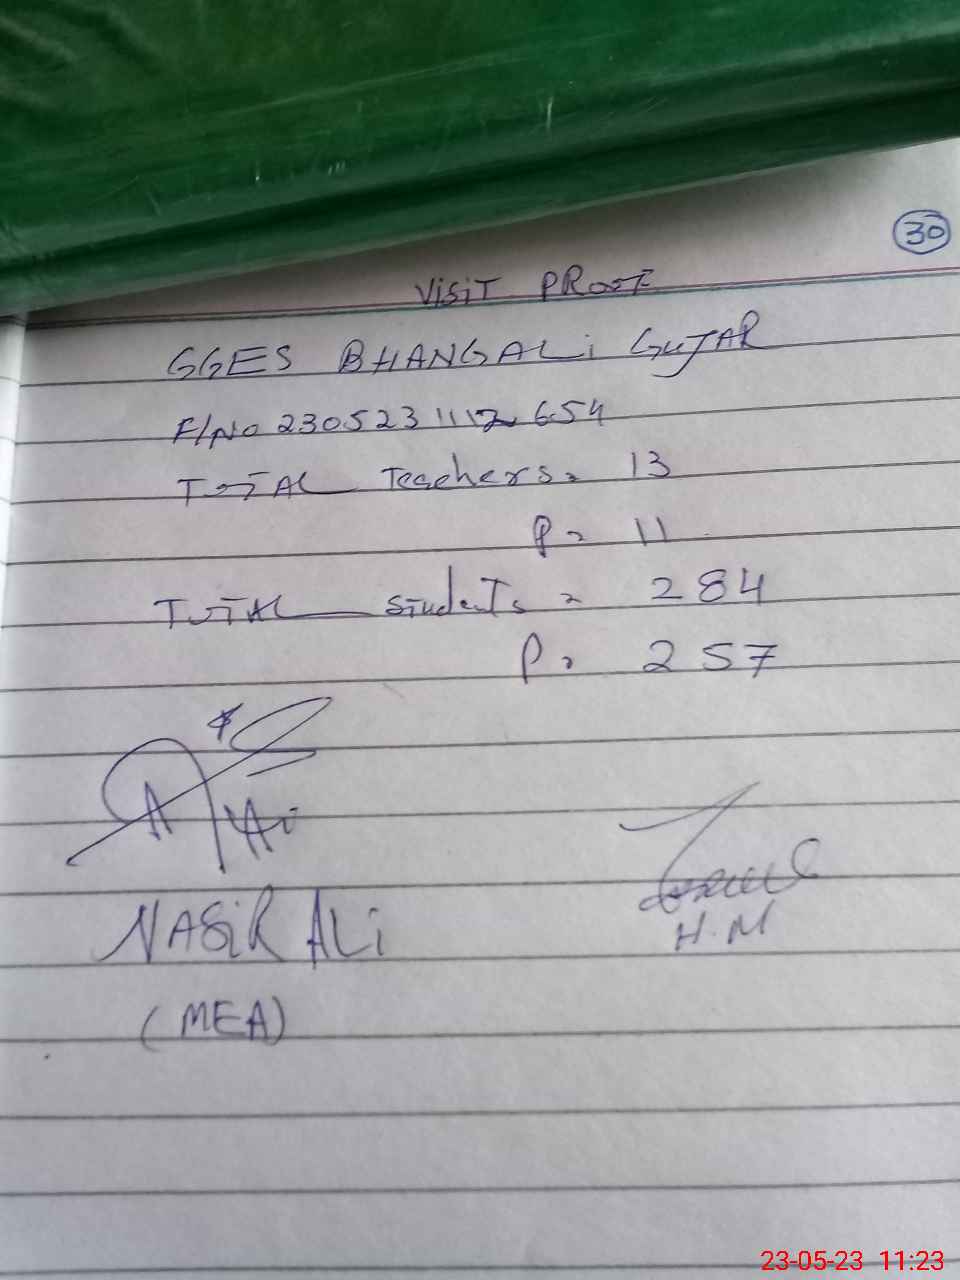 30
VISIT PROOF
GGES BHANGALi GUJAR
F/No 2305231112654
TOTAL Teachers = 13
P = 11
TOTAL students = 284
P = 257
NASiR ALi
H.M
(MEA)
23-05-23 11:23